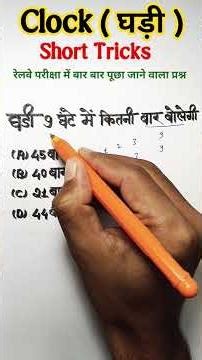 Clock ( घड़ी )
Short Tricks
रेलवे परीक्षा में बार बार पूछा जाने वाला प्रश्न
घड़ी 9 घंटे में कितनी बार बोलेगी
(A) 45 बा
(B) 40 बा
(C) 21 बा
(D) 44 बा